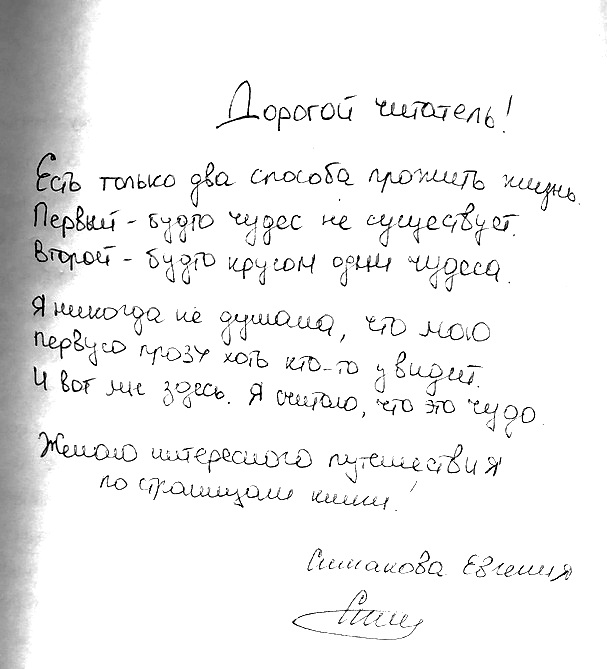 Дорогой читатель!
Есть только два способа прожить жизнь.
Первый - будто чудес не существует.
Второй - будто кругом одни чудеса.
Я никогда не думала, что мою
первую прозу хоть кто-то увидит.
И вот мы здесь. Я считаю, что это чудо.
Желаю интересного путешествия
по страницам книги!
Симакова Евгения